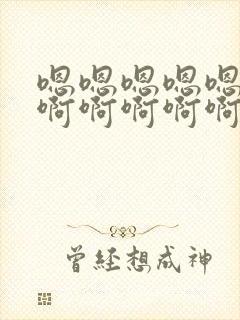 嗯嗯嗯嗯嗯
啊啊啊啊啊
曾经想成神